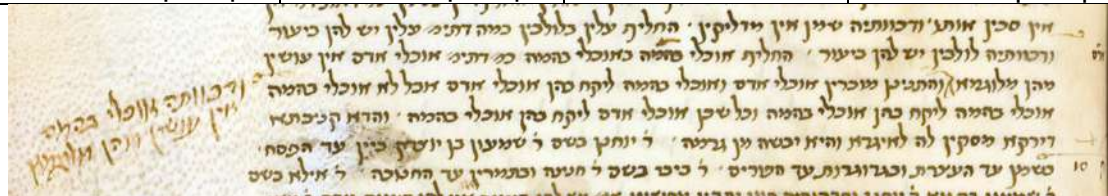 אין סכין אותו ודכוותיה שימן אין מדליקין החליף עלין בלולבין כמה דתימ׳ עלין יש להן ביעור
ודכוותיה לולבין יש להן ביעור החליף אוכלי בהמה באוכלי בהמה כמ דתימ׳ אוכלי אדם אין עושין
מהן מלוגמא והתנינן מוכרין אוכלי אדם ואוכלי בהמה ליקח בהן אוכלי אדם אבל לא אוכלי בהמה
אוכלי בהמה ליקח בהן אוכלי בהמה וכל שכן אוכלי אדם ליקח בהן אוכלי בהמה והדא קניבתא
דירקא מסקין לה לאיגרא והיא יבשה מן גרמה ר׳ יוחנן בשם ר׳ שמעון בן יוצדק ביין עד הפסח
בשמן עד העצרת ובגרוגרות עד הפורים ר׳ ביבי בשם ר׳ חנינה ובתמרין עד החנוכה ר׳ אילא בשם
ודכוותה אוכלי בהמה
אין עושין מהן מלוגמא